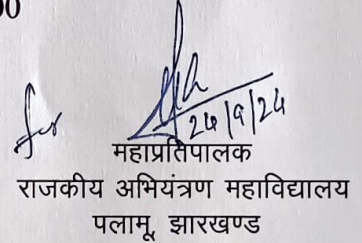 00
for
24/9/24
महाप्रतिपालक
राजकीय अभियंत्रण महाविद्यालय
पलामू, झारखण्ड